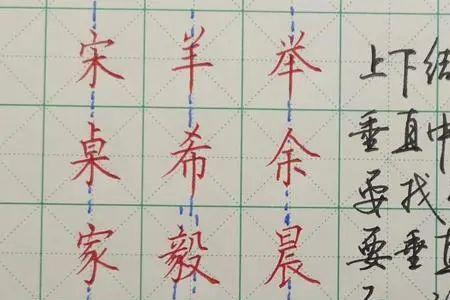 宋羊举上下结
桌希余垂直中
家毅晨要找
要垂直